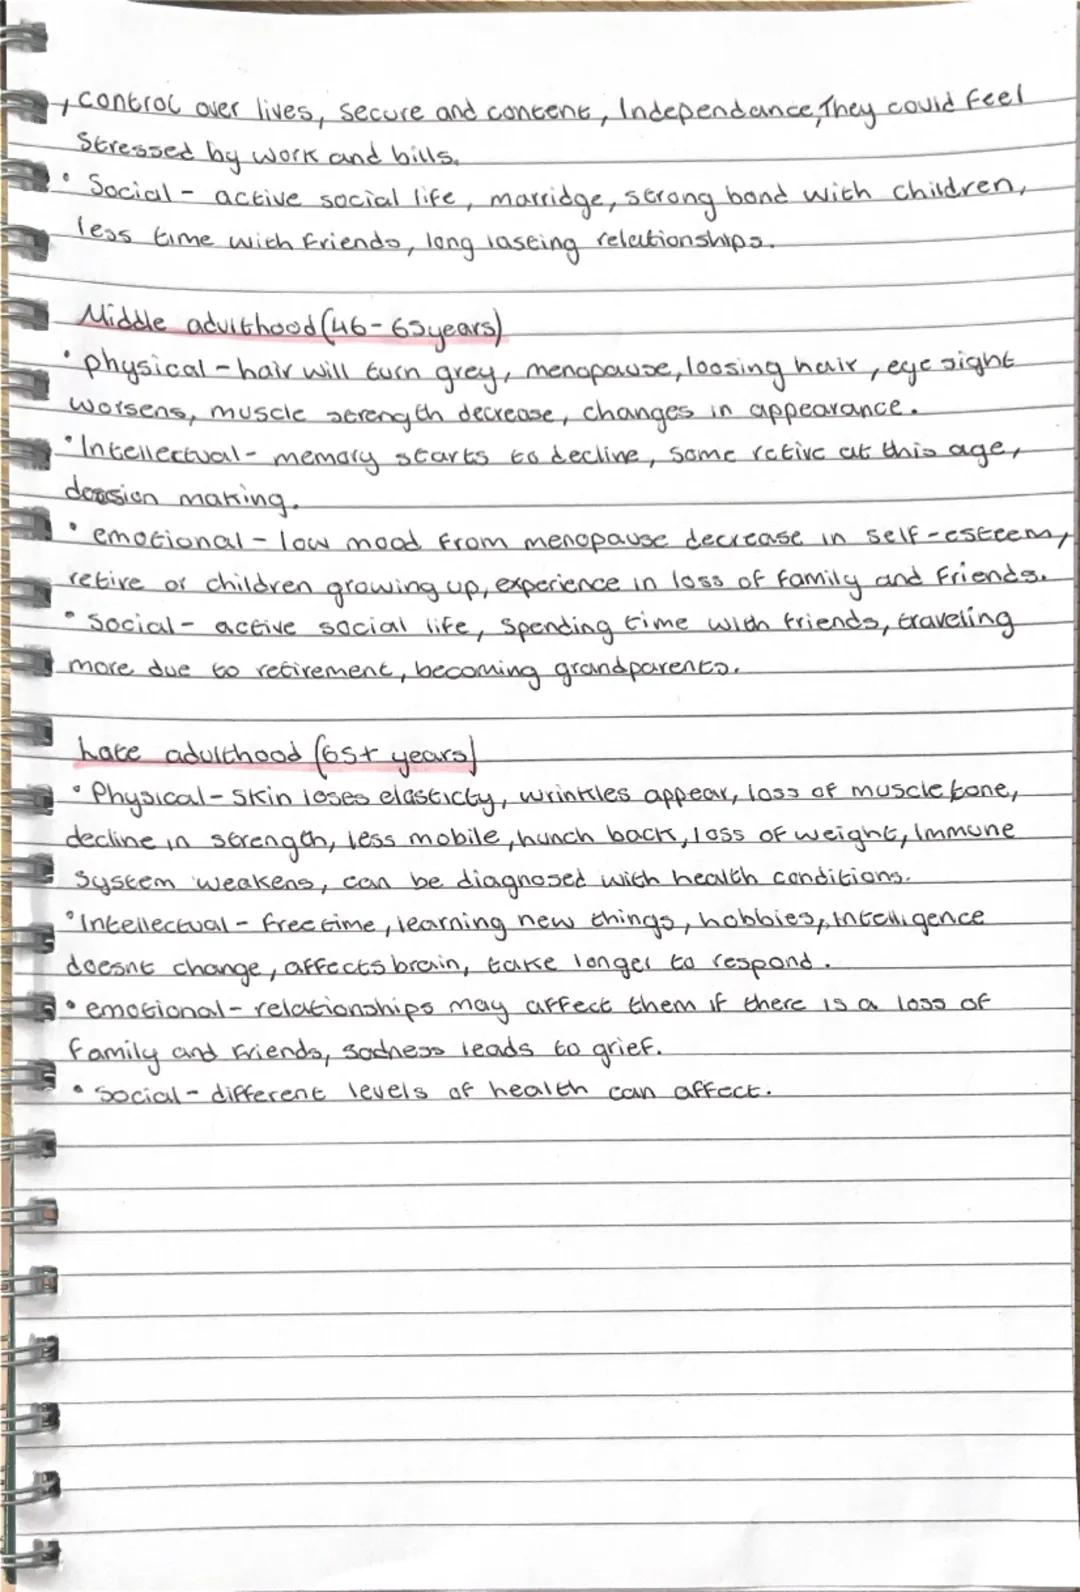 , control over lives, secure and content, Independance, They could feel
Stressed by work and bills.
• Social - active social life, marridge, strong bond with children,
less time with friends, long lasting relationships.
Middle adulthood (46-65years)
• physical - hair will turn grey, menopause, loosing hair, eye sight
worsens, muscle strength decrease, changes in appearance.
• Intellectual - memory starts to decline, some retire at this age,
making.
• emotional - low mood from menopause decrease in self-esteem,
retire or children growing up, experience in loss of family and friends.
• Social - active social life, spending time with friends, traveling
more due to retirement, becoming grandparents.
Late adulthood (65+ years)
• Physical - skin loses elasticty, wrinkles appear, loss of muscle tone,
decline in strength, less mobile, hunch back, loss of weight, immune
system weakens, can be diagnosed with health conditions.
• Intellectual - free time, learning new things, hobbies, Intelligence
doesnt change, affects brain, take longer to respond.
• emotional - relationships may affect them if there is a loss of
family and friends, sadness leads to grief.
• social - different levels of health can affect.